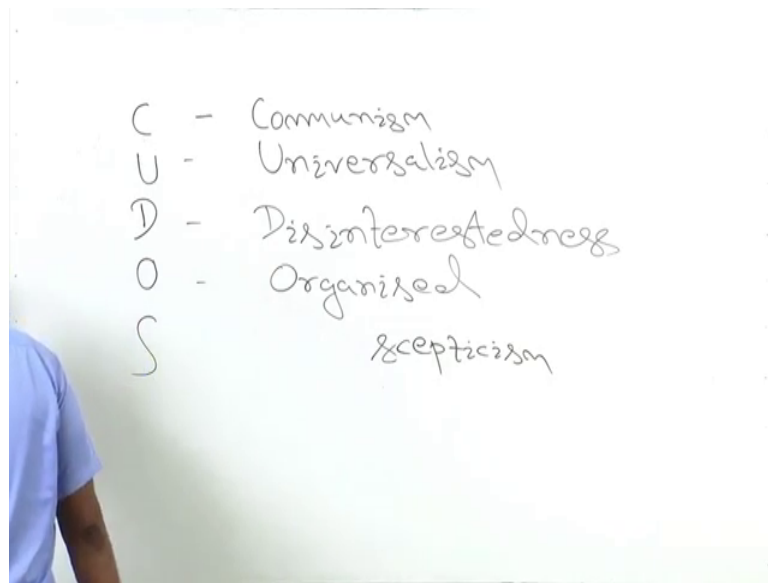 C - Communism
U - Universalism
D - Disinterestedness
O - Organised
S scepticism